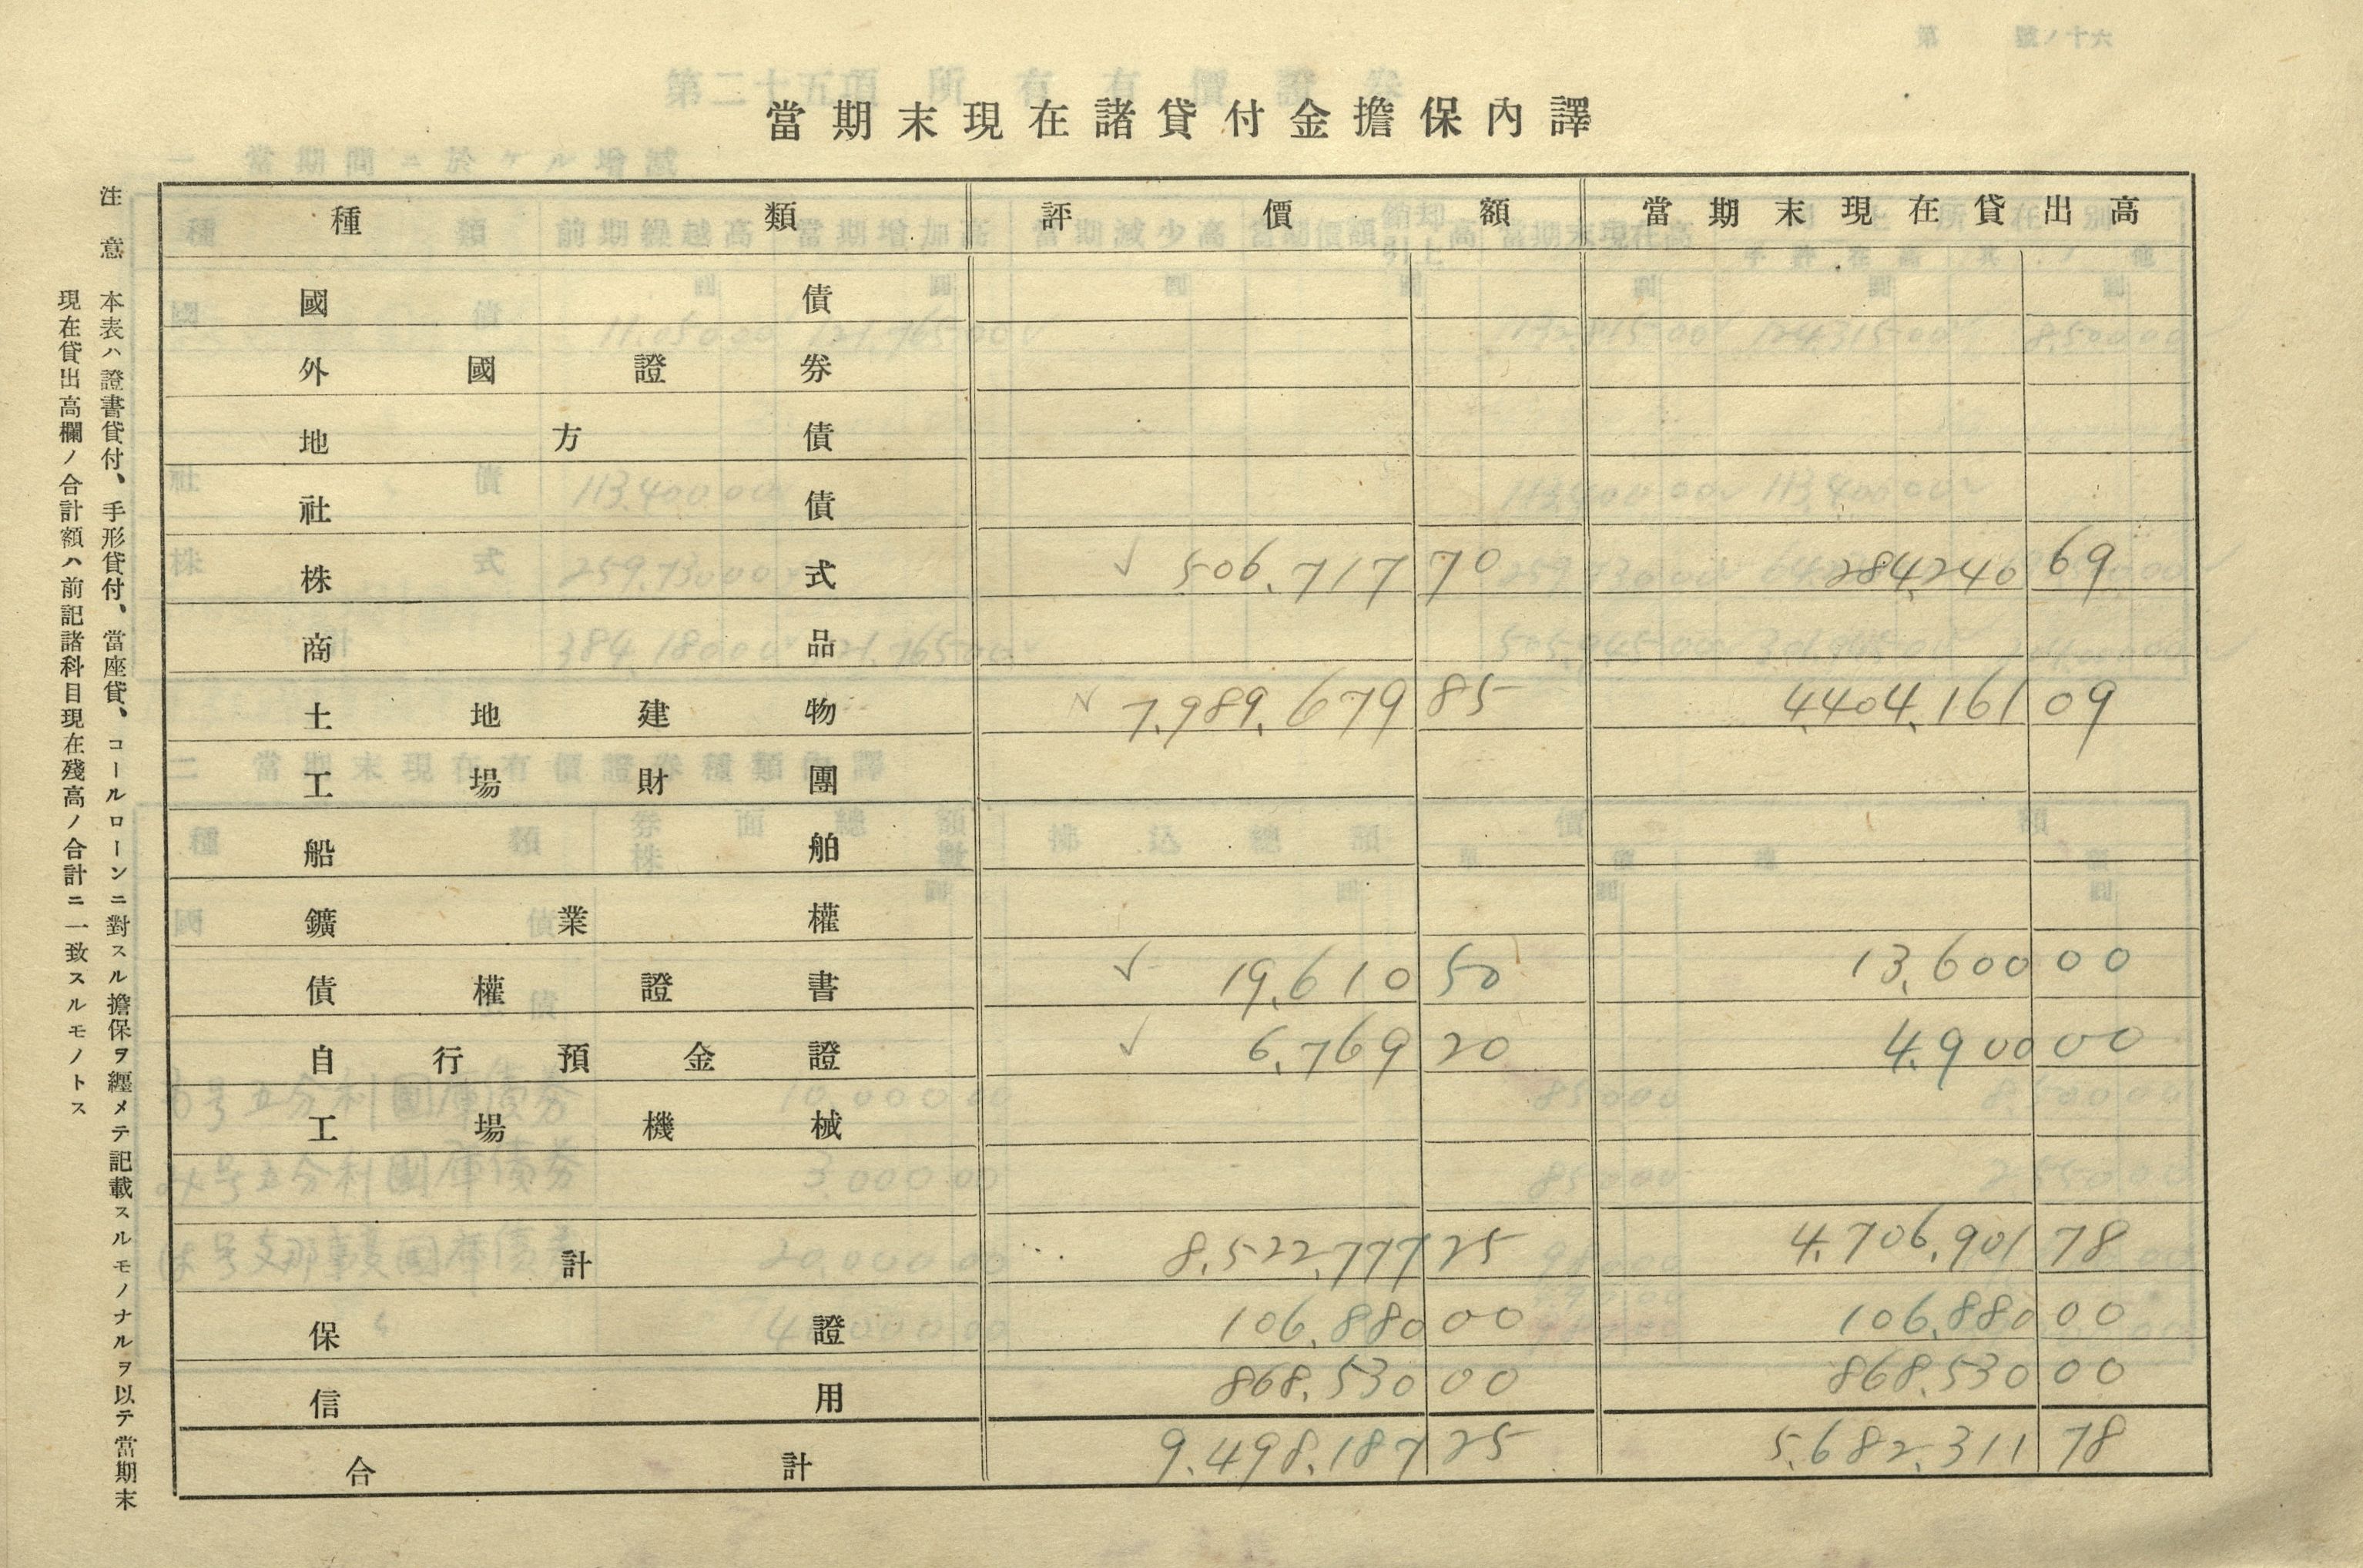 當期末現在諸貸付金擔保內譯
種類 評價額 當期末現在貸出高
國債
外國證券
地方債
社債
株式 506,717 70 284,240 69
商品
土地建物 7,989,679 85 4,404,161 09
工場財團
船舶
鑛業權
債權證書 19,610 50 13,600 00
自行預金證 6,769 20 4,900 00
工場機械
計 8,522,777 25 4,706,901 78
保證 106,880 00 106,880 00
信用 868,530 00 868,530 00
合計 9,498,187 25 5,682,311 78
注意
本表ハ證書貸付、手形貸付、當座貸、コールローンニ對スル擔保ヲ纒メテ記載スルモノナルヲ以テ當期末
現在貸出高欄ノ合計額ハ前記諸科目現在殘高ノ合計ニ一致スルモノトス